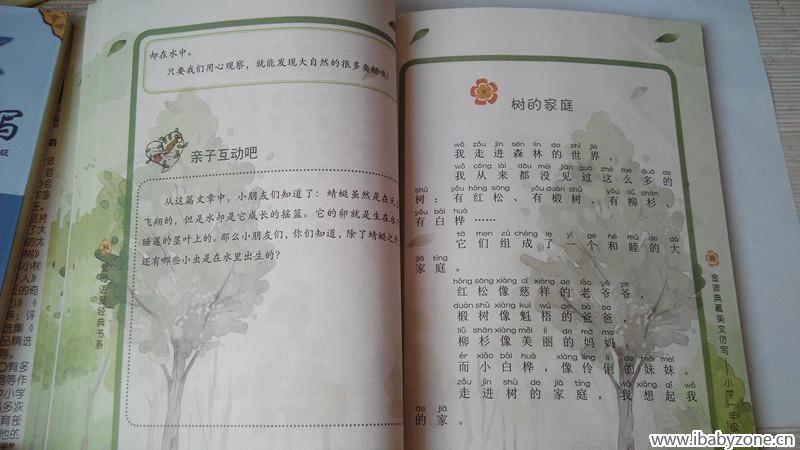 却在水中。
只要我们用心观察，就能发现大自然的很多奥秘哦！
亲子互动吧
从这篇文章中，小朋友们知道了：蜻蜓虽然是在天上
飞翔的，但是水却是它成长的摇篮。它的卵就是生在水
睡莲的茎叶上的。那么小朋友们，你们知道，除了蜻蜓之外
还有哪些小虫是在水里出生的？
爱经典书系
树的家庭
wǒ zǒu jìn sēn lín de shì jiè
我走进森林的世界。
wǒ cóng lái dōu méi jiàn guò zhè me duō de
我从来都没见过这么多的
shù yǒu hóng sōng yǒu duàn shù yǒu liǔ shān
树：有红松、有椴树、有柳杉、
yǒu bái huà
有白桦……
tā men zǔ chéng le yí gè hé mù de dà
它们组成了一个和睦的大
jiā tíng
家庭。
hóng sōng xiàng cí xiáng de lǎo yé ye
红松像慈祥的老爷爷，
duàn shù xiàng kuí wú de bà ba
椴树像魁梧的爸爸，
liǔ shān xiàng měi lì de mā ma
柳杉像美丽的妈妈，
ér xiǎo bái huà xiàng líng lì de mèi mei
而小白桦，像伶俐的妹妹。
zǒu jìn shù de jiā tíng wǒ xiǎng qǐ wǒ
走进树的家庭，我想起我
de jiā
的家。
金波典藏美文仿写
小学一年级
www.ibabyzone.cn